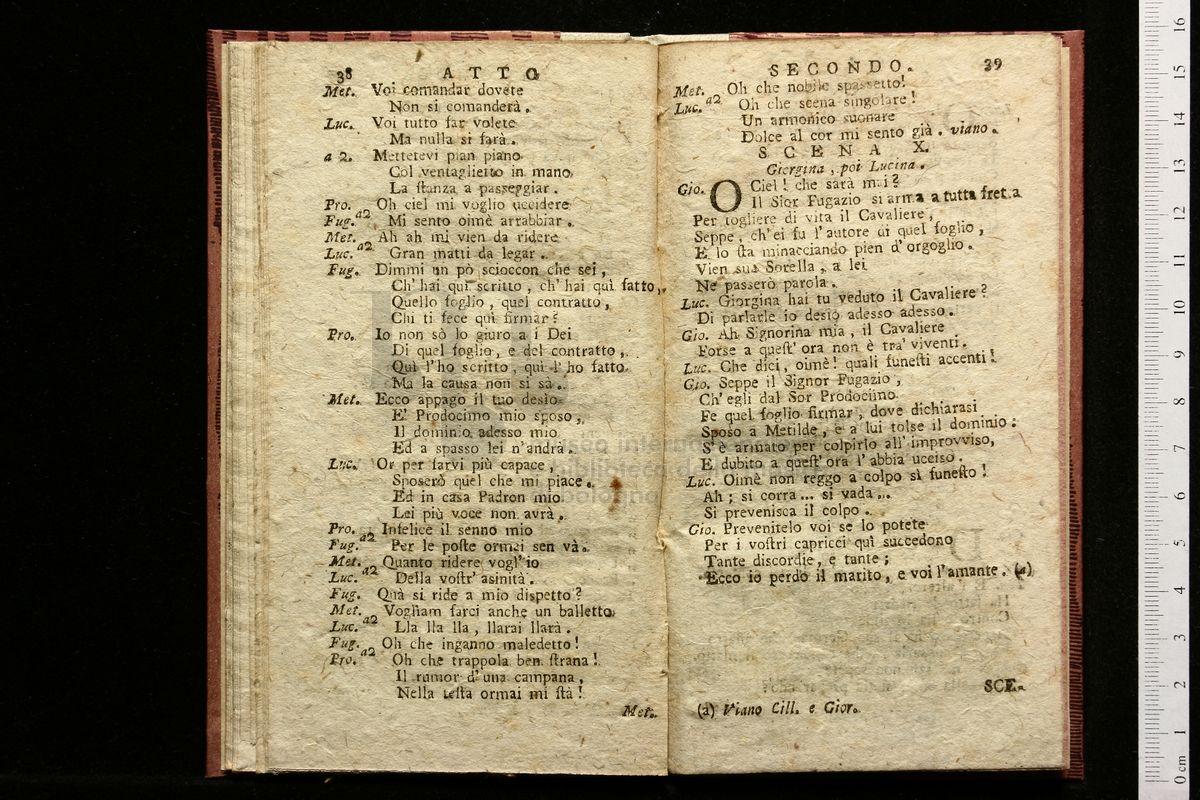 38 ATTO
Met. Voi comandar dovete
Non si comanderà.
Luc. Voi tutto far volete
Ma nulla si farà.
a 2. Mettetevi pian piano
Col ventaglietto in mano,
La ſtanza a paſseggiar.
Pro. Oh ciel mi voglio uccidere
Fug. a2 Mi sento oimè arrabbiar.
Met. Ah ah mi vien da ridere
Luc. a2 Gran matti da legar.
Fug. Dimmi un pò scioccon che sei,
Ch' hai quì scritto, ch' hai quì fatto,
Quello foglio, quel contratto,
Chi ti fece quì firmar?
Pro. Io non sò lo giuro a i Dei
Di quel foglio, e del contratto,
Quì l'ho scritto, quì l'ho fatto
Ma la causa non si sà.
Met. Ecco appago il tuo desio
E' Prodocimo mio sposo,
Il dominio adesso mio
Ed a spasso lei n'andrà.
Luc. Or per farvi più capace,
Sposerò quel che mi piace.
Ed in casa Padron mio
Lei più voce non avrà.
Pro. Infelice il senno mio
Fug. a2 Per le poſte ormai sen và.
Met. Quanto ridere vogl'io
Luc. a2 Della voſtr' asinità.
Fug. Quà si ride a mio dispetto?
Met. Vogliam farci anche un balletto
Luc. a2 Lla lla lla, llarai llarà.
Fug. Oh che inganno maledetto!
Pro. a2 Oh che trappola ben ſtrana!
Il rumor d'una campana,
Nella teſta ormai mi ſtà!
Met.
SECONDO. 39
Met. Oh che nobile spassetto!
Luc. a2 Oh che scena singolare!
Un armonico suonare
Dolce al cor mi sento già. viano.
SCENA X.
Giorgina, poi Lucina.
Gio. O Ciel! che sarà mai?
Il Sior Fugazio si arma a tutta fretta
Per togliere di vita il Cavaliere,
Seppe, ch'ei fu l'autore di quel foglio,
E lo ſta minacciando pien d'orgoglio.
Vien sua Sorella, a lei
Ne passerò parola.
Luc. Giorgina hai tu veduto il Cavaliere?
Di parlarle io desio adesso adesso.
Gio. Ah Signorina mia, il Cavaliere
Forse a queſt' ora non è tra' viventi.
Luc. Che dici, oimè! quali funeſti accenti!
Gio. Seppe il Signor Fugazio,
Ch' egli dal Sor Prodocimo
Fe quel foglio firmar, dove dichiarasi
Sposo a Metilde, e a lui tolse il dominio:
S'è armato per colpirlo all' improvviso,
E dubito a queſt' ora l'abbia ucciso.
Luc. Oimè non reggo a colpo sì funeſto!
Ah; si corra... si vada...
Si prevenisca il colpo.
Gio. Prevenitelo voi se lo potete
Per i voſtri capricci quì succedono
Tante discordie, e tante;
Ecco io perdo il marito, e voi l'amante. (a)
SCE.
(a) Viano Cill. e Gior.